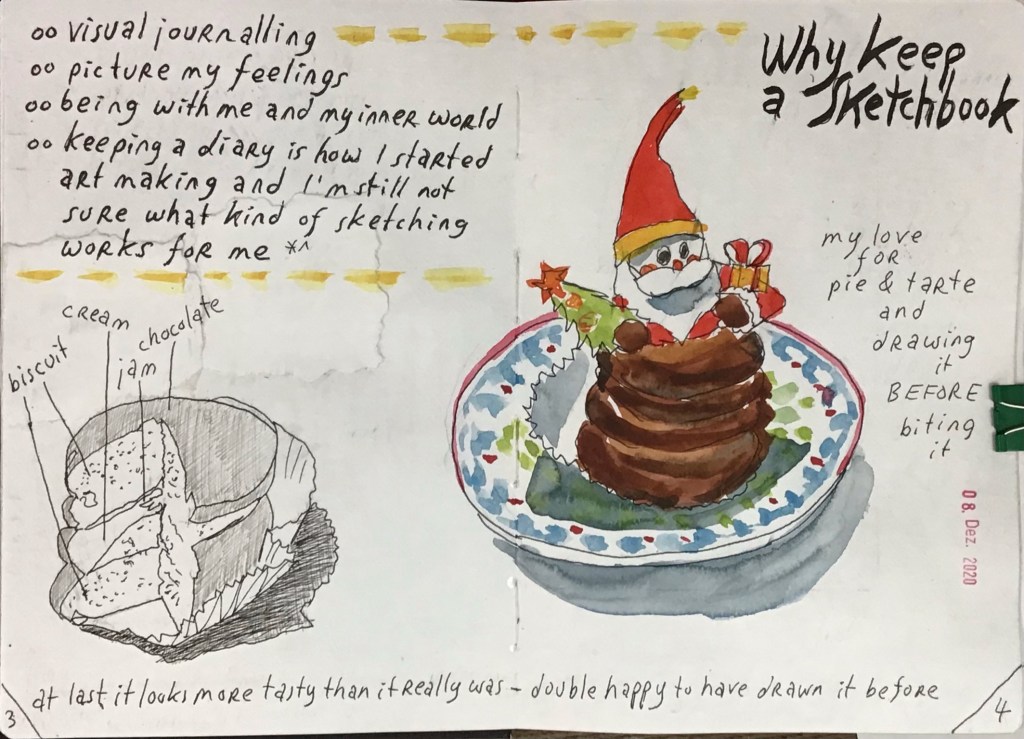 oo visual journalling
oo picture my feelings
oo being with me and my inner world
oo keeping a diary is how I started
art making and I'm still not
sure what kind of sketching
works for me *^
Why keep
a Sketchbook
cream
chocolate
biscuit
jam
my love
for
pie & tarte
and
drawing
it
BEFORE
biting
it
08. Dez. 2020
at last it looks more tasty than it really was – double happy to have drawn it before
3
4